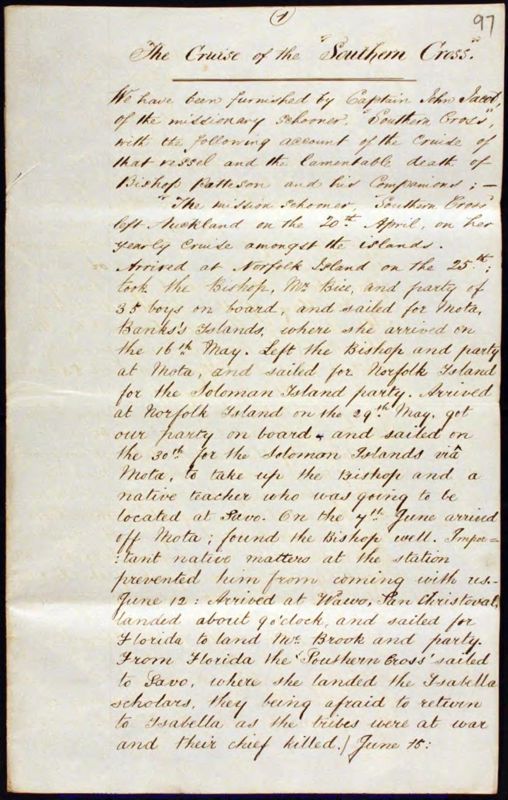 (1)
97
The Cruise of the "Southern Cross".
We have been furnished by Captain John Jacob,
of the missionary schooner, "Southern Cross",
with the following account of the Cruise of
that vessel and the lamentable death of
Bishop Patteson and his Companions; —
"The mission schooner, "Southern Cross"
left Auckland on the 20th April, on her
yearly Cruise amongst the islands.
Arrived at Norfolk Island on the 25th;
took the Bishop, Mr Bice, and party of
35 boys on board, and sailed for Mota,
Banks's Islands, where she arrived on
the 16th May. Left the Bishop and party
at Mota, and sailed for Norfolk Island
for the Soloman Island party. Arrived
at Norfolk Island on the 29th May, got
our party on board, and sailed on
the 30th for the Soloman Islands viâ
Mota, to take up the Bishop and a
native teacher who was going to be
located at Savo. On the 7th June arrived
off Mota; found the Bishop well. Impor=
:tant native matters at the station
prevented him from coming with us—
June 12: Arrived at Wawo, San Christoval,
landed about 9 o'clock, and sailed for
Florida to land Mr. Brook and party.
From Florida the "Southern Cross" sailed
to Savo, where she landed the Isabella
scholars, they being afraid to return
to Isabella as the tribes were at war
and their chief killed.) June 15: